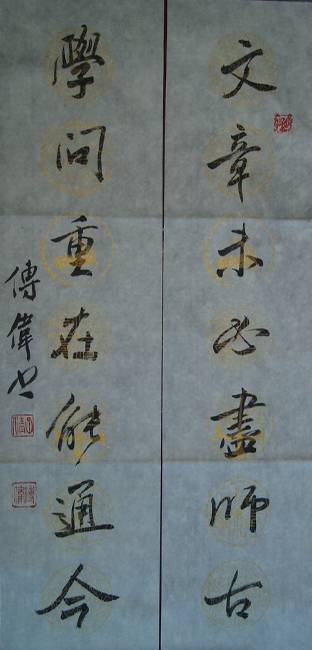 文章未必盡師古
學問重在能通今
傅偉